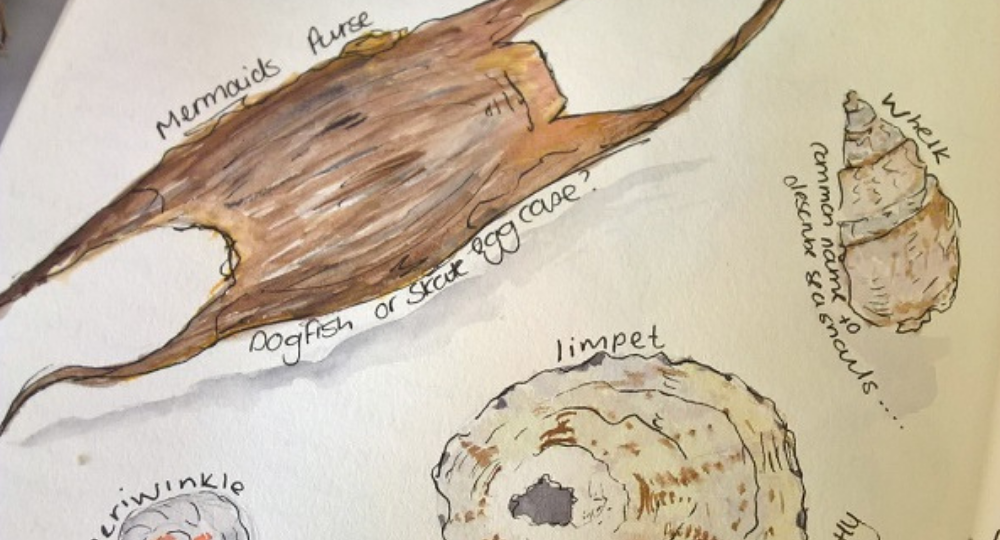 Mermaids Purse
Dogfish or Skate egg case?
Whelk
common name to
describe sea snails....
limpet
eriwinkle